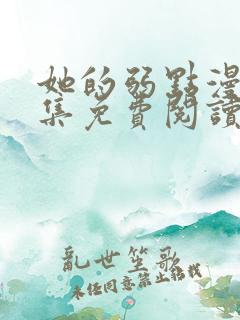 她的弱點漫
集免費閱讀
亂世笙歌
未经同意禁止转载